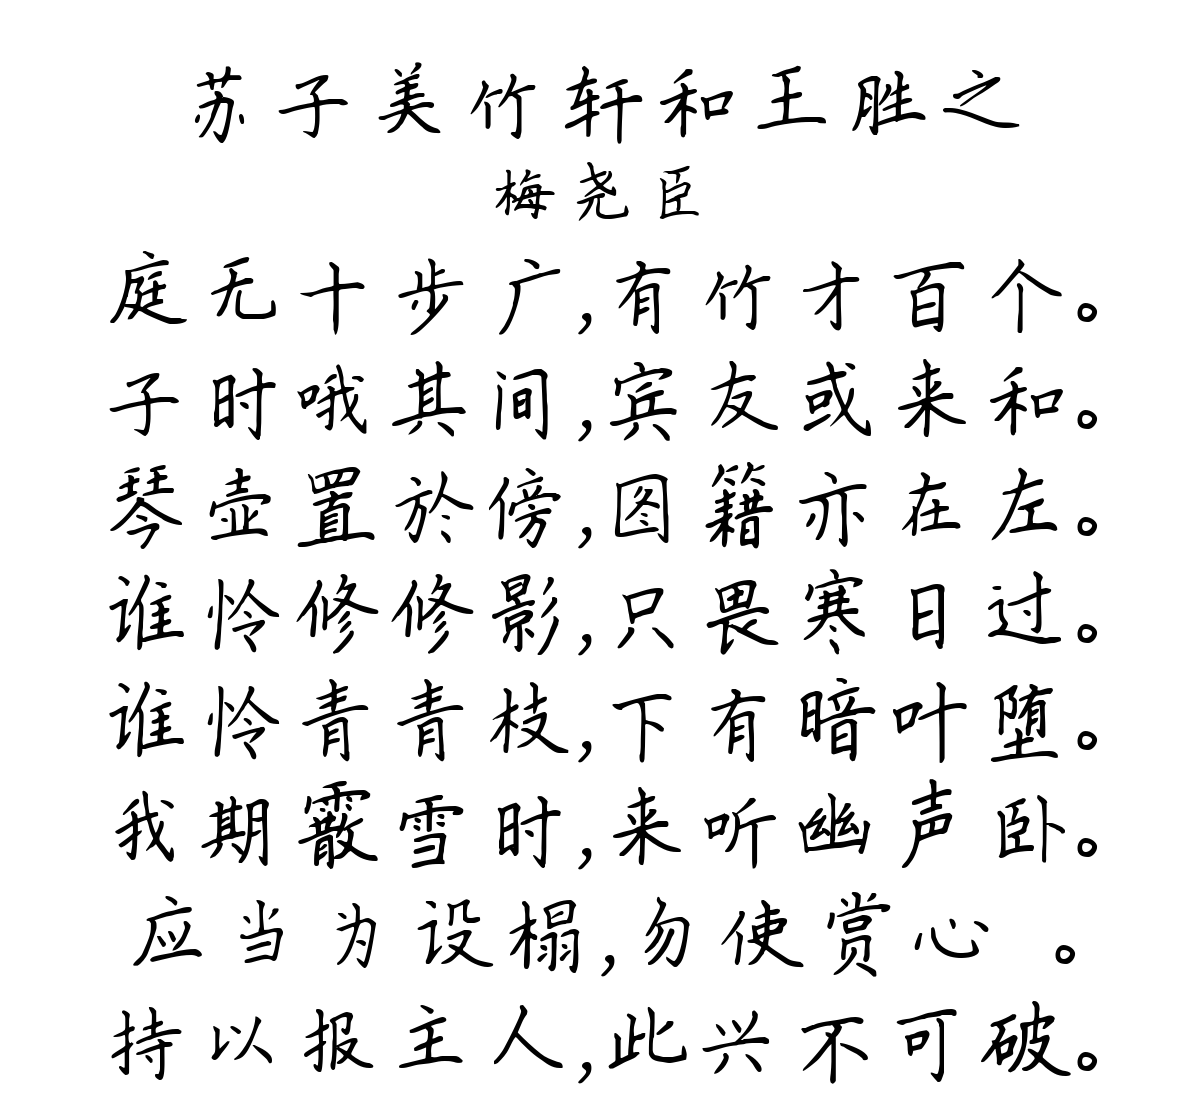 苏子美竹轩和王胜之
梅尧臣
庭无十步广,有竹才百个。
子时哦其间,宾友或来和。
琴壶置於傍,图籍亦在左。
谁怜修修影,只畏寒日过。
谁怜青青枝,下有暗叶堕。
我期霰雪时,来听幽声卧。
应当为设榻,勿使赏心 。
持以报主人,此兴不可破。